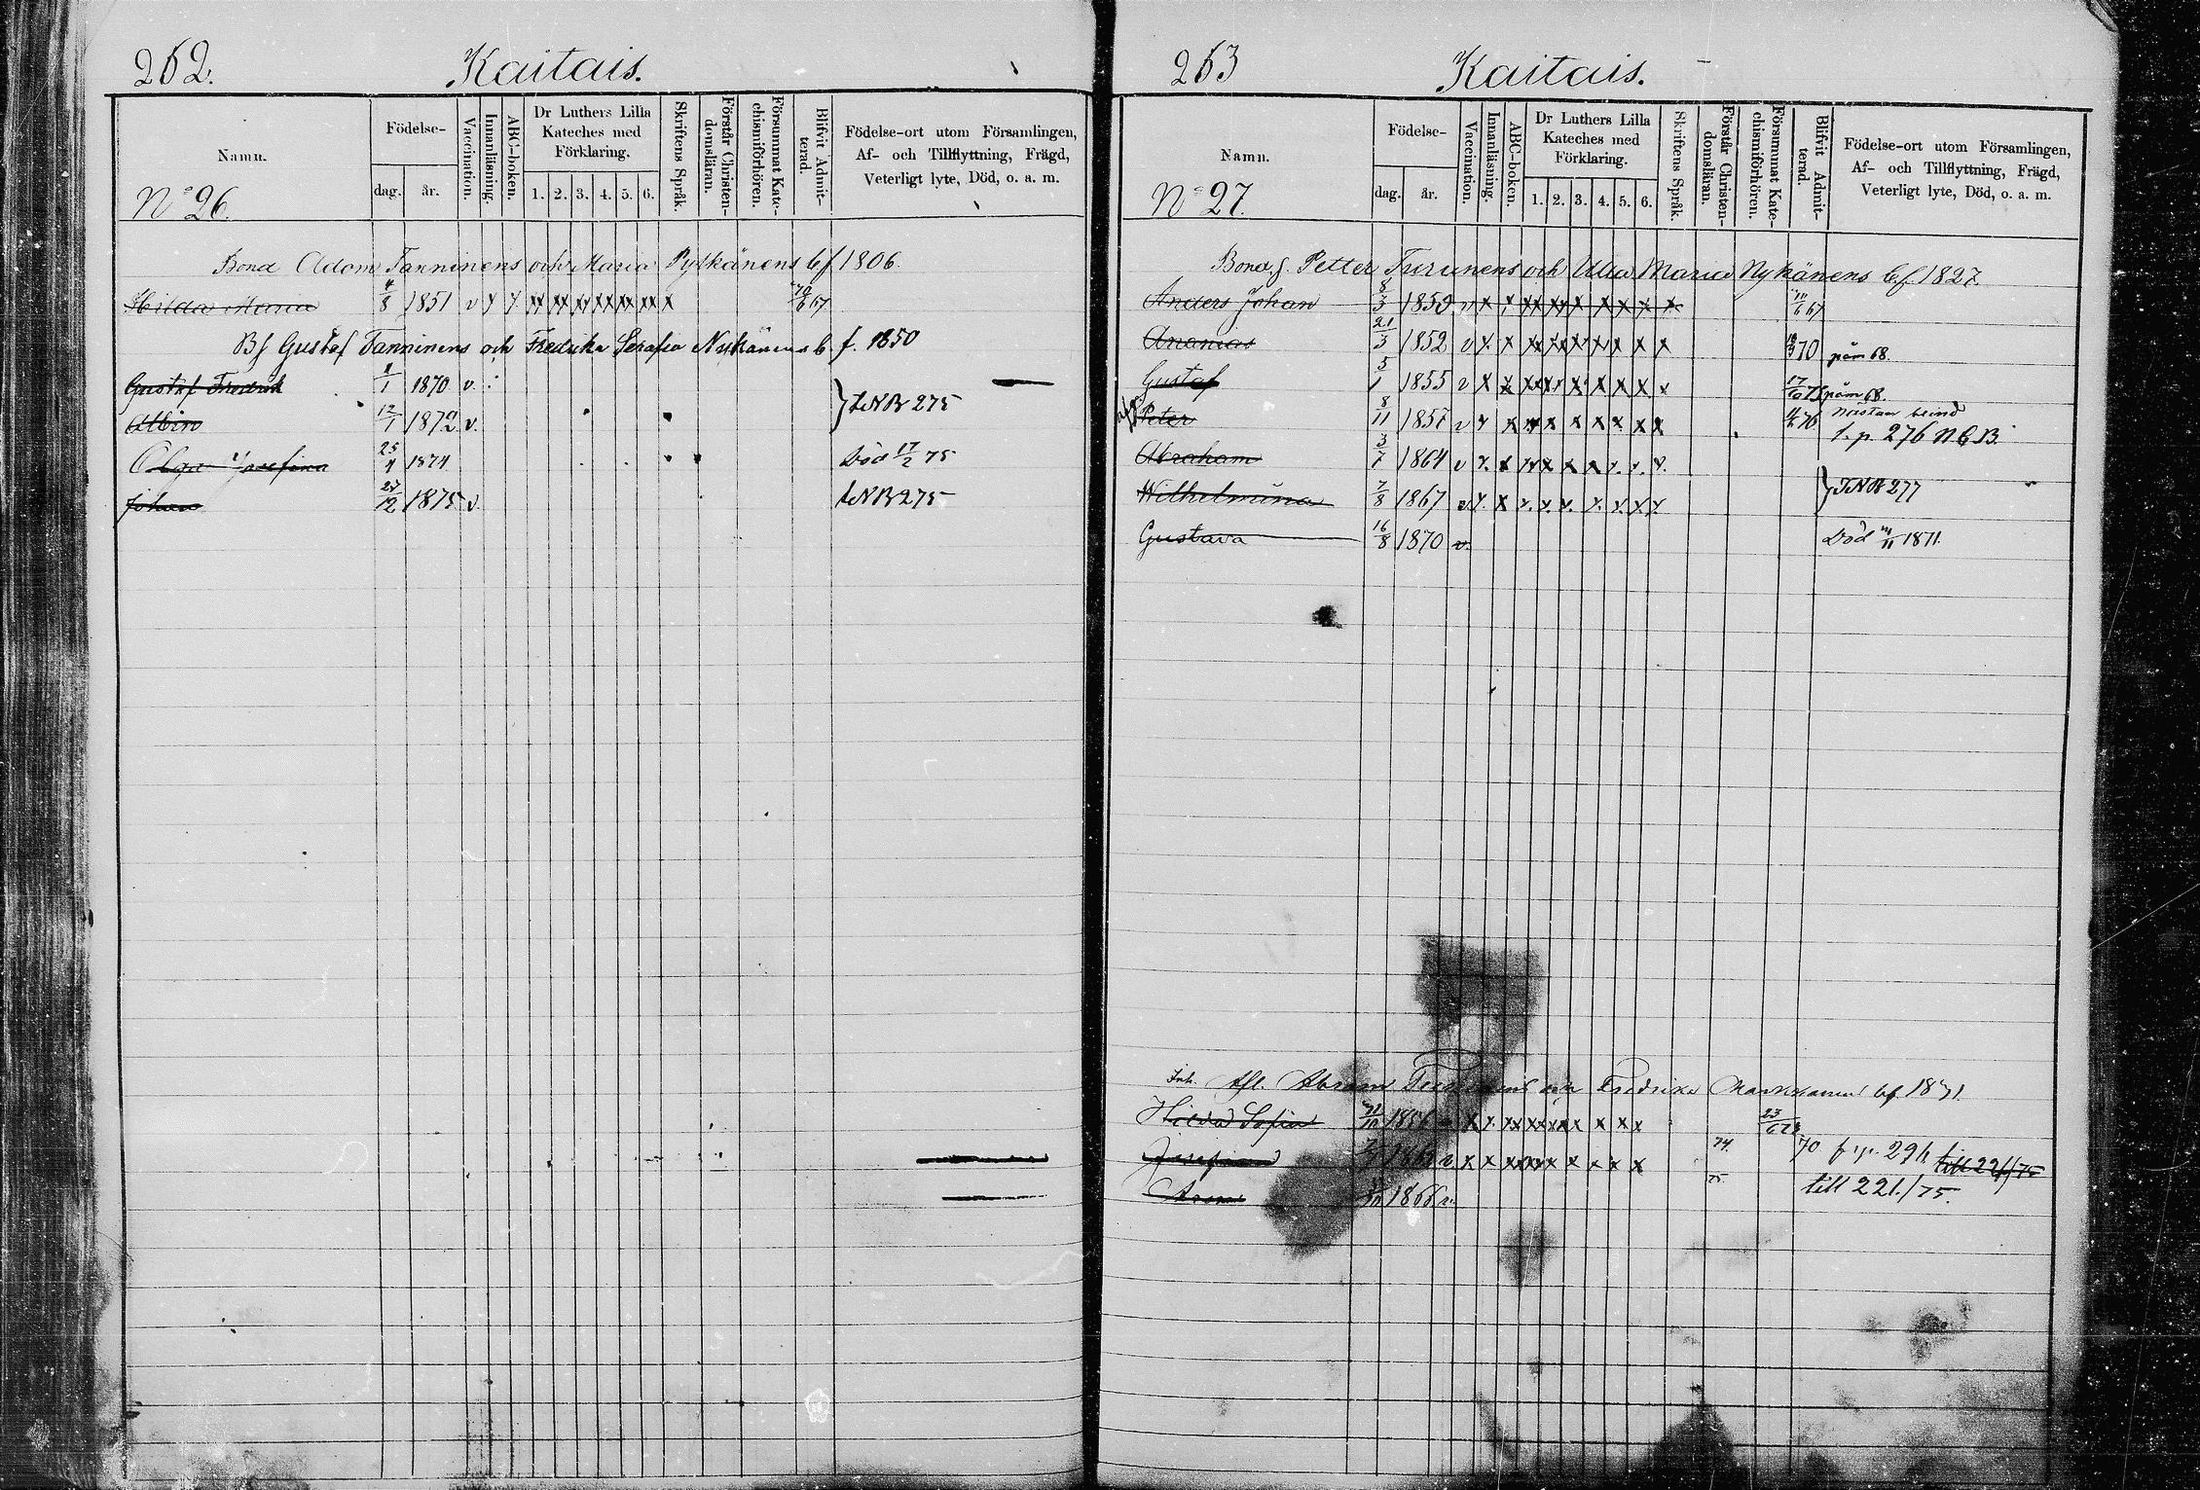 262.
Kaitais.
Namn.
Födelse-
dag.
år.
Vaccination.
Innanläsning.
ABC-boken.
Dr Luthers Lilla
Kateches med
Förklaring.
1. 2. 3. 4. 5. 6.
Skriftens Språk.
Förstår Christen-
domsläran.
Försummat Kate-
chismiförhören.
Blifvit Admit-
terad.
Födelse-ort utom Församlingen,
Af- och Tillflyttning, Frägd,
Veterligt lyte, Död, o. a. m.
No 26.
Bond Adam Tanninens och Maria Pylkänens bf 1806.
Hilda Maria 4/8 1851 v x x xx xx xx xx xx xx x 67
Bf Gustaf Tanninens och Fredrika Serafia Nykänens b f. 1850
Gustaf Fredrik 1/1 1870 v.
Albin 12/1 1872 v.
} t.NB 275
Olga Josefina 25/4 1874 Död 17/2 75
Johan 27/12 1875 v. t.NB 275
263
Kaitais.
Namn.
Födelse-
dag.
år.
Vaccination.
Innanläsning.
ABC-boken.
Dr Luthers Lilla
Kateches med
Förklaring.
1. 2. 3. 4. 5. 6.
Skriftens Språk.
Förstår Christen-
domsläran.
Försummat Kate-
chismiförhören.
Blifvit Admit-
terad.
Födelse-ort utom Församlingen,
Af- och Tillflyttning, Frägd,
Veterligt lyte, Död, o. a. m.
No 27.
Bond. f. Petter Turunens och Ulla Maria Nykänens bf. 1827
Anders Johan 8/3 1850 v x x x x x x x x x 67
Ananias 21/3 1852 v x x x x x x x x x 70 68.
Gustaf 5/1 1855 v x x x x x x x x x 68.
Peter 8/11 1857 v x x x x x x x x x 76 nästan blind
f. p. 276 N.B.
Abraham 3/7 1864 v x x x x x x x x v.
Wilhelmina 7/8 1867 v x x x x x x x x x
} T.NB 277
Gustava 16/8 1870 v. Död /11 1871.
Abram Fredrika bf 1831
Hilda Sofia x x x x x x x x x 23/6
Josefina x x x x x x x x x 74. 70 f. p. 291. till 221/75
75. till 221./75.
1866 v.